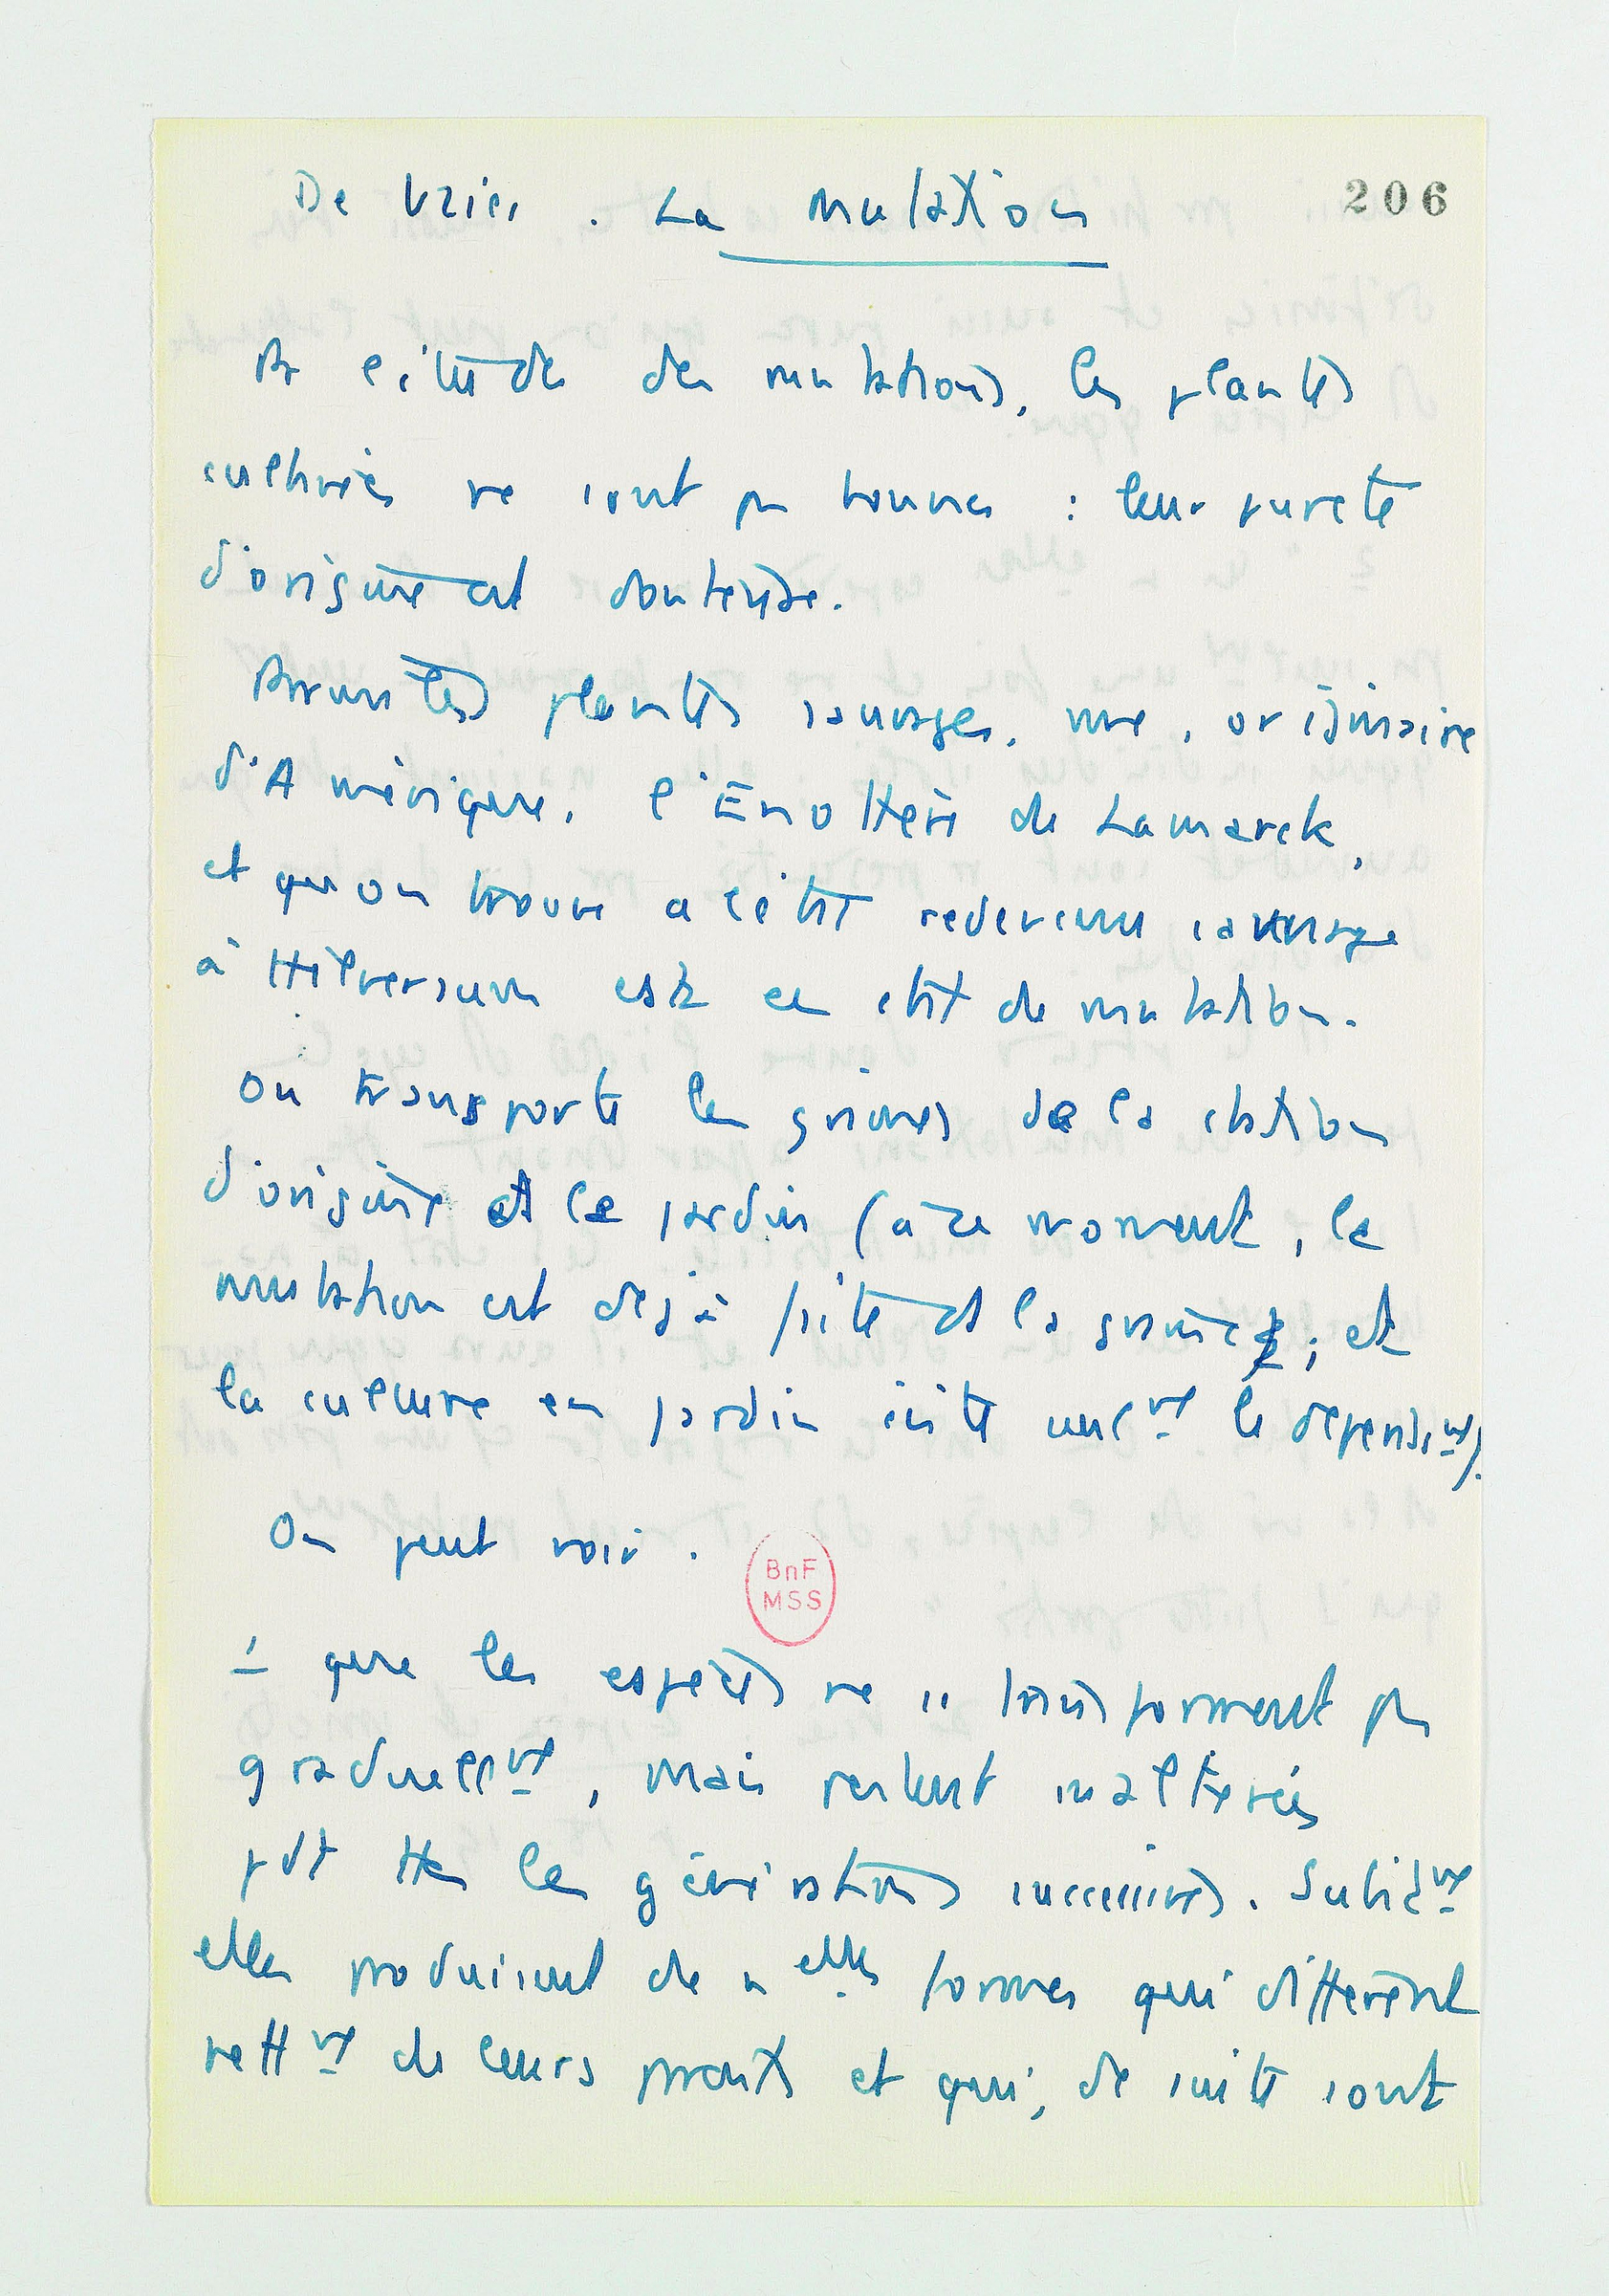 De Vries. La mutation
206
Pr l'étude des mutations, les plantes
cultivées ne sont pas bonnes : leur pureté
d'origine est douteuse.
Parmi les plantes sauvages, une, originaire
d'Amérique, l'Enothère de Lamarck,
et qu'on trouve à l'état redevenu sauvage
à Hilversum est en état de mutation.
On transporte les graines de la station
d'origine ds le jardin (à ce moment, la
mutation est déjà faite ds la graine ; et
la culture en jardin évite seult le dépérisst).
On peut voir.
BnF
MSS
1 que les espèces ne se transforment pas
graduellt, mais restent inaltérées
pdt ttes les générations successives. Subitt
elles produisent de nelles formes qui diffèrent
nettt de leurs parents et qui, de suite sont